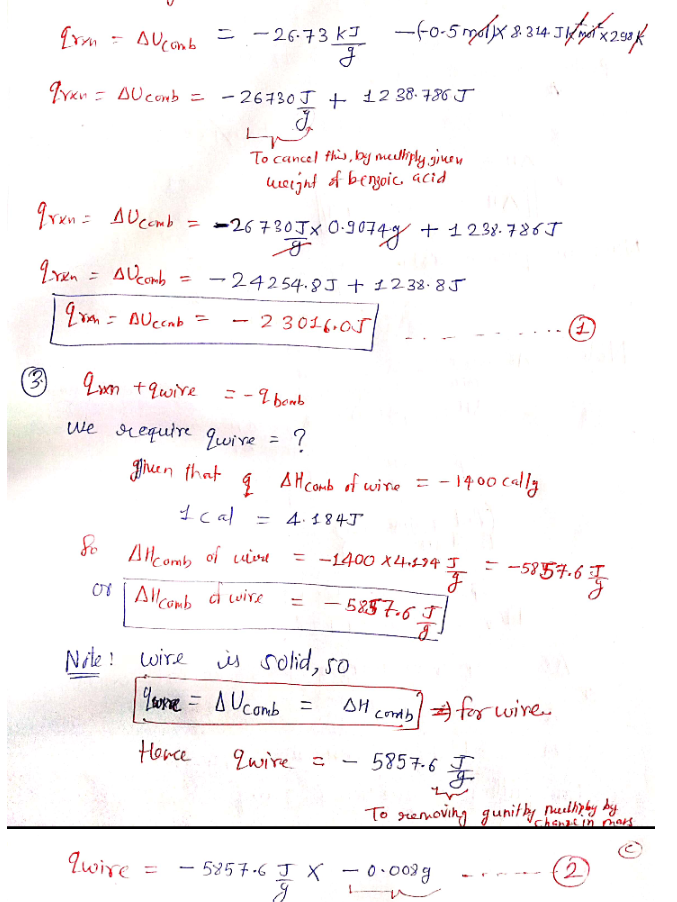 qrxn = ΔUcomb = -26.73 kJ/g -(-0.5 mol)× 8.314 JK⁻¹mol⁻¹×298K
qrxn = ΔUcomb = -26730 J/g + 1238.786J
To cancel this, by multiply given
weight of benzoic acid
qrxn = ΔUcomb = -26730J/g × 0.9074g + 1238.786J
qrxn = ΔUcomb = -24254.8J + 1238.8J
qrxn = ΔUcomb = -23016.0J ------- ①
③ qrxn + qwire = -qbomb
we require qwire = ?
given that q ΔHcomb of wire = -1400 cal/g
1 cal = 4.184J
So ΔHcomb of wire = -1400 × 4.184 J/g = -5857.6 J/g
or ΔHcomb of wire = -5857.6 J/g
Note: wire is solid, so
qwire = ΔUcomb = ΔHcomb ⇒ for wire
Hence qwire = - 5857.6 J/g
To removing g unit by multiply by
change in mass
qwire = - 5857.6 J/g × - 0.008g ------ ②